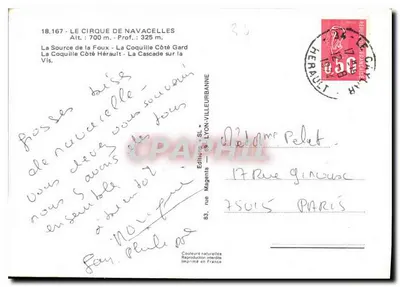 18.167 - LE CIRQUE DE NAVACELLES
Alt. : 700 m. - Prof. : 325 m.
La Source de la Foux - La Coquille Côté Gard
La Coquille Côté Hérault - La Cascade sur la
Vis.
grosses bises
de navacelle -
vous devez vous souvenir
nous y avons été tous
ensemble
à bientôt
Monique
Jean Philippe
Editions "SL"
82, rue Magenta - LYON-VILLEURBANNE
Couleurs naturelles
Reproduction interdite
Imprimé en France
34 - LE CAYLAR
HERAULT
0,50
Pelat
17 Rue
75015 PARIS
CPAPHIL